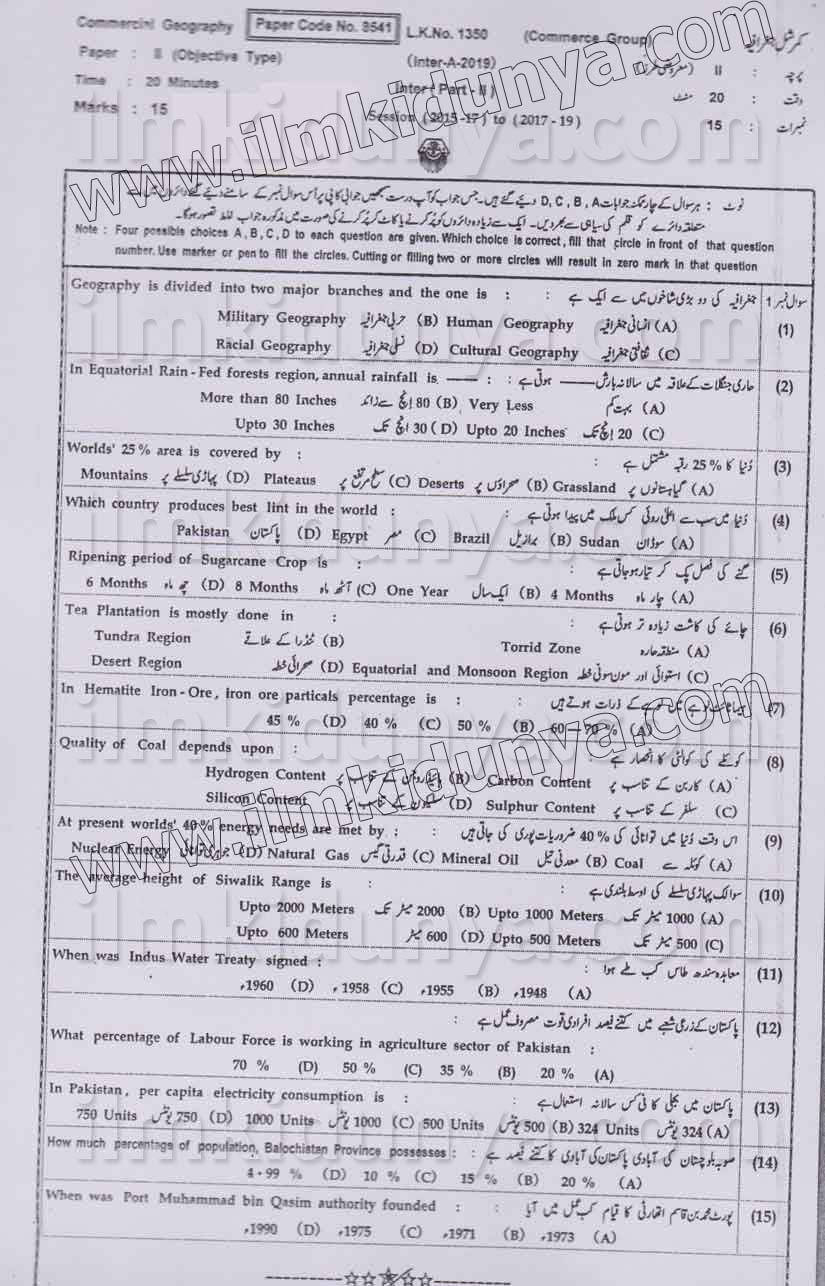 Commercial Geography Paper Code No. 8541 L.K.No. 1350 (Commerce Group) کمرشل جغرافیہ
Paper : II (Objective Type) (Inter-A-2019) پرچہ : II (معروضی طرز)
Time : 20 Minutes Inter (Part - II) وقت : 20 منٹ
Marks : 15 Session (2015-17) to (2017-19) نمبرات : 15
www.ilmkidunya.com
نوٹ : ہر سوال کے چار ممکنہ جوابات D, C, B, A دیئے گئے ہیں۔ جس جواب کو آپ درست سمجھیں جوابی کاپی پر اُس سوال نمبر کے سامنے دیئے گئے دائروں میں سے
متعلقہ دائرے کو قلم کی سیاہی سے بھر دیں۔ ایک سے زیادہ دائروں کو پُر کرنے یا کاٹ کر پُر کرنے کی صورت میں مذکورہ جواب غلط تصور ہوگا۔
Note : Four possible choices A, B, C, D to each question are given. Which choice is correct, fill that circle in front of that question
number. Use marker or pen to fill the circles. Cutting or filling two or more circles will result in zero mark in that question
Geography is divided into two major branches and the one is : جغرافیہ کی دو بڑی شاخوں میں سے ایک ہے : سوال نمبر 1
(1) Military Geography حربی جغرافیہ (B) Human Geography انسانی جغرافیہ (A)
Racial Geography نسلی جغرافیہ (D) Cultural Geography ثقافتی جغرافیہ (C)
In Equatorial Rain - Fed forests region, annual rainfall is —— : حاری جنگلات کے علاقہ میں سالانہ بارش —— ہوتی ہے : (2)
More than 80 Inches 80 انچ سے زائد (B) Very Less بہت کم (A)
Upto 30 Inches 30 انچ تک (D) Upto 20 Inches 20 انچ تک (C)
Worlds' 25% area is covered by : دُنیا کا 25% رقبہ مشتمل ہے : (3)
Mountains پہاڑی سلسلے پر (D) Plateaus سطح مرتفع پر (C) Deserts صحراؤں پر (B) Grassland گیاہستانوں پر (A)
Which country produces best lint in the world : دُنیا میں سب سے اعلیٰ روئی کس ملک میں پیدا ہوتی ہے : (4)
Pakistan پاکستان (D) Egypt مصر (C) Brazil برازیل (B) Sudan سوڈان (A)
Ripening period of Sugarcane Crop is : گنے کی فصل پک کر تیار ہو جاتی ہے : (5)
6 Months چھ ماہ (D) 8 Months آٹھ ماہ (C) One Year ایک سال (B) 4 Months چار ماہ (A)
Tea Plantation is mostly done in : چائے کی کاشت زیادہ تر ہوتی ہے : (6)
Tundra Region ٹنڈرا کے علاقے (B) Torrid Zone منطقہ حارہ (A)
Desert Region صحرائی خطہ (D) Equatorial and Monsoon Region استوائی اور مون سونی خطہ (C)
In Hematite Iron - Ore, iron ore particals percentage is : ہیماٹائٹ لوہے میں لوہے کے ذرات ہوتے ہیں : (7)
45 % (D) 40 % (C) 50 % (B) 60 – 70 % (A)
Quality of Coal depends upon : کوئلے کی کوالٹی کا انحصار ہے : (8)
Hydrogen Content ہائیڈروجن کے تناسب پر (B) Carbon Content کاربن کے تناسب پر (A)
Silicon Content سلیکون کے تناسب پر (D) Sulphur Content سلفر کے تناسب پر (C)
At present worlds' 40% energy needs are met by : اس وقت دُنیا میں توانائی کی 40% ضروریات پوری کی جاتی ہیں : (9)
Nuclear Energy جوہری توانائی (D) Natural Gas قدرتی گیس (C) Mineral Oil معدنی تیل (B) Coal کوئلہ سے (A)
The average height of Siwalik Range is : سوالک پہاڑی سلسلے کی اوسط بلندی ہے : (10)
Upto 2000 Meters 2000 میٹر تک (B) Upto 1000 Meters 1000 میٹر تک (A)
Upto 600 Meters 600 میٹر (D) Upto 500 Meters 500 میٹر تک (C)
When was Indus Water Treaty signed : معاہدہ سندھ طاس کب طے ہوا : (11)
1960ء (D) 1958ء (C) 1955ء (B) 1948ء (A)
پاکستان کے زرعی شعبے میں کتنے فیصد افرادی قوت مصروف عمل ہے : (12)
What percentage of Labour Force is working in agriculture sector of Pakistan :
70 % (D) 50 % (C) 35 % (B) 20 % (A)
In Pakistan, per capita electricity consumption is : پاکستان میں بجلی کا فی کس سالانہ استعمال ہے : (13)
750 Units 750 یونٹس (D) 1000 Units 1000 یونٹس (C) 500 Units 500 یونٹس (B) 324 Units 324 یونٹس (A)
How much percentage of population, Balochistan Province possesses : صوبہ بلوچستان کی آبادی پاکستان کی آبادی کا کتنے فیصد ہے : (14)
4.99 % (D) 10 % (C) 15 % (B) 20 % (A)
When was Port Muhammad bin Qasim authority founded : پورٹ محمد بن قاسم اتھارٹی کا قیام کب عمل میں آیا : (15)
1990ء (D) 1975ء (C) 1971ء (B) 1973ء (A)